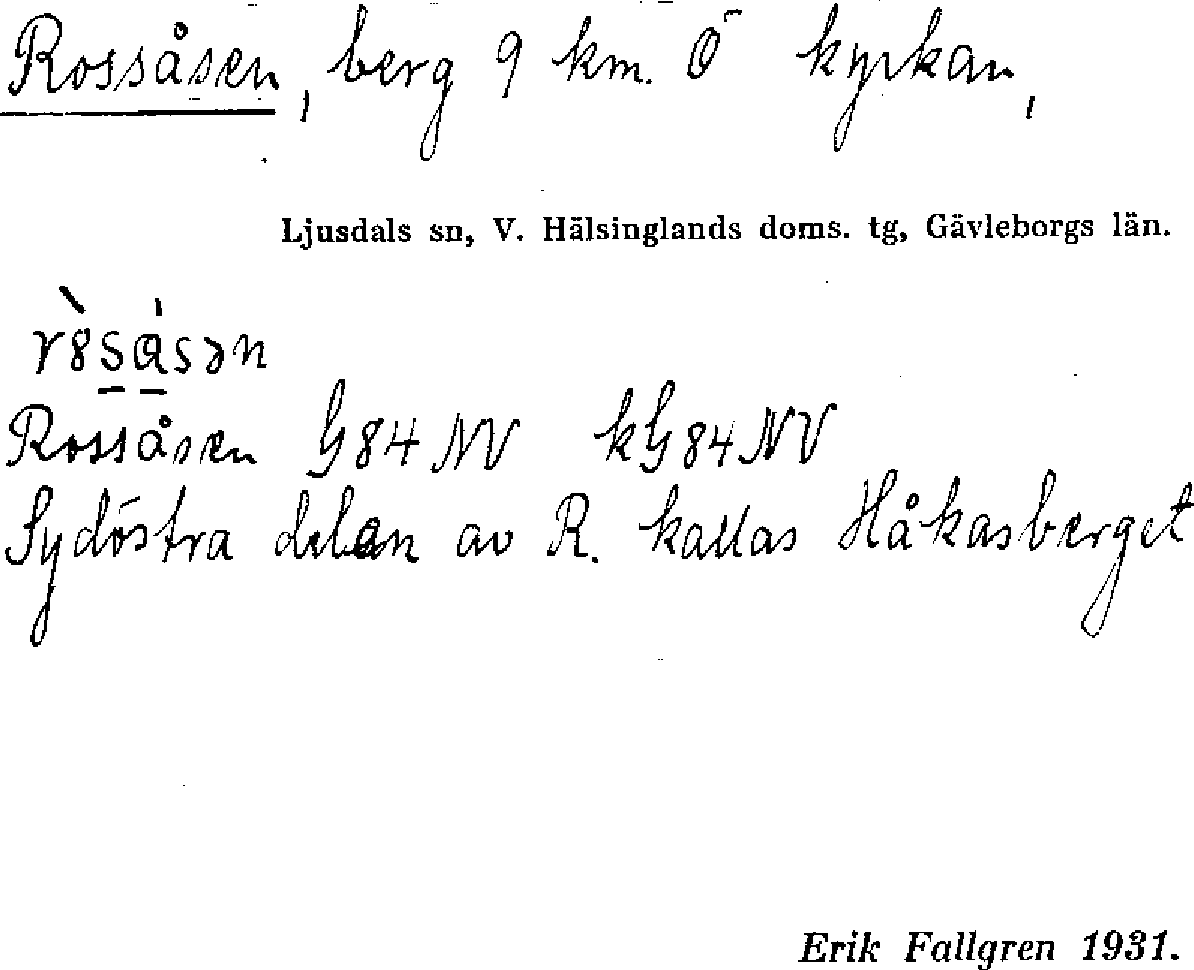 Rossåsen, berg 9 km. Ö kyrkan,
Ljusdals sn, V. Hälsinglands doms. tg, Gävleborgs län.
r8̀sásən
Rossåsen G84NV kG84NV
Sydöstra delen av R. kallas Håkasberget
Erik Fallgren 1931.